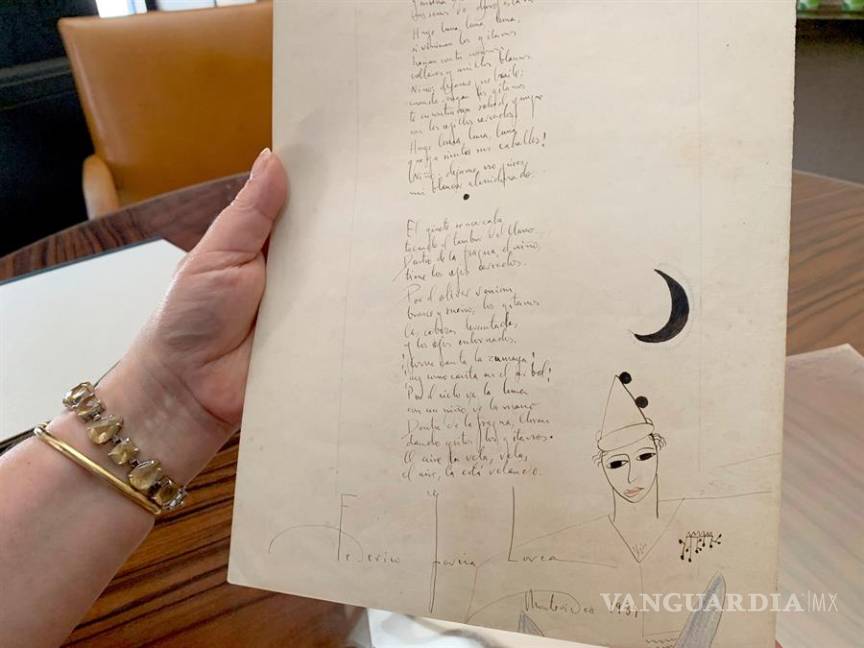 Huye luna, luna, luna,
si vinieran los gitanos
con tu
collares y anillos blancos
Niño, déjame que baile;
cuando vengan los gitanos
te encontrarán sobre el yunque
con los ojillos cerrados.
Huye luna, luna, luna,
que ya siento sus caballos!
Niño, déjame, no pises,
mi blancor almidonado.
El ginete se acercaba
tocando el tambor del llano.
Dentro de la fragua, el niño,
tiene los ojos cerrados.
Por el olivar venian
bronce y sueño, los gitanos
las cabezas levantadas
y los ojos entornados.
¡Como canta la zumaya!
¡ay como canta en el arbol!
Por el cielo va la luna
con un niño de la mano
Dentro de la fragua, lloran
dando gritos los gitanos.
El aire la vela, vela,
el aire, la está velando.
Federico García Lorca
Montevideo
VANGUARDIA|MX